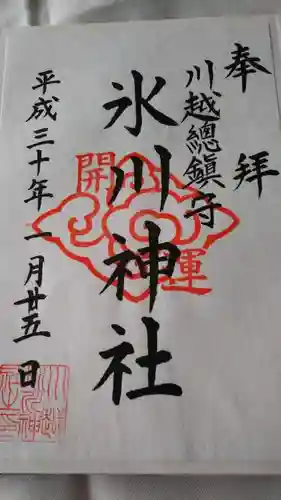 奉拝
川越總鎮守
氷川神社
平成三十年一月廿五日
開運